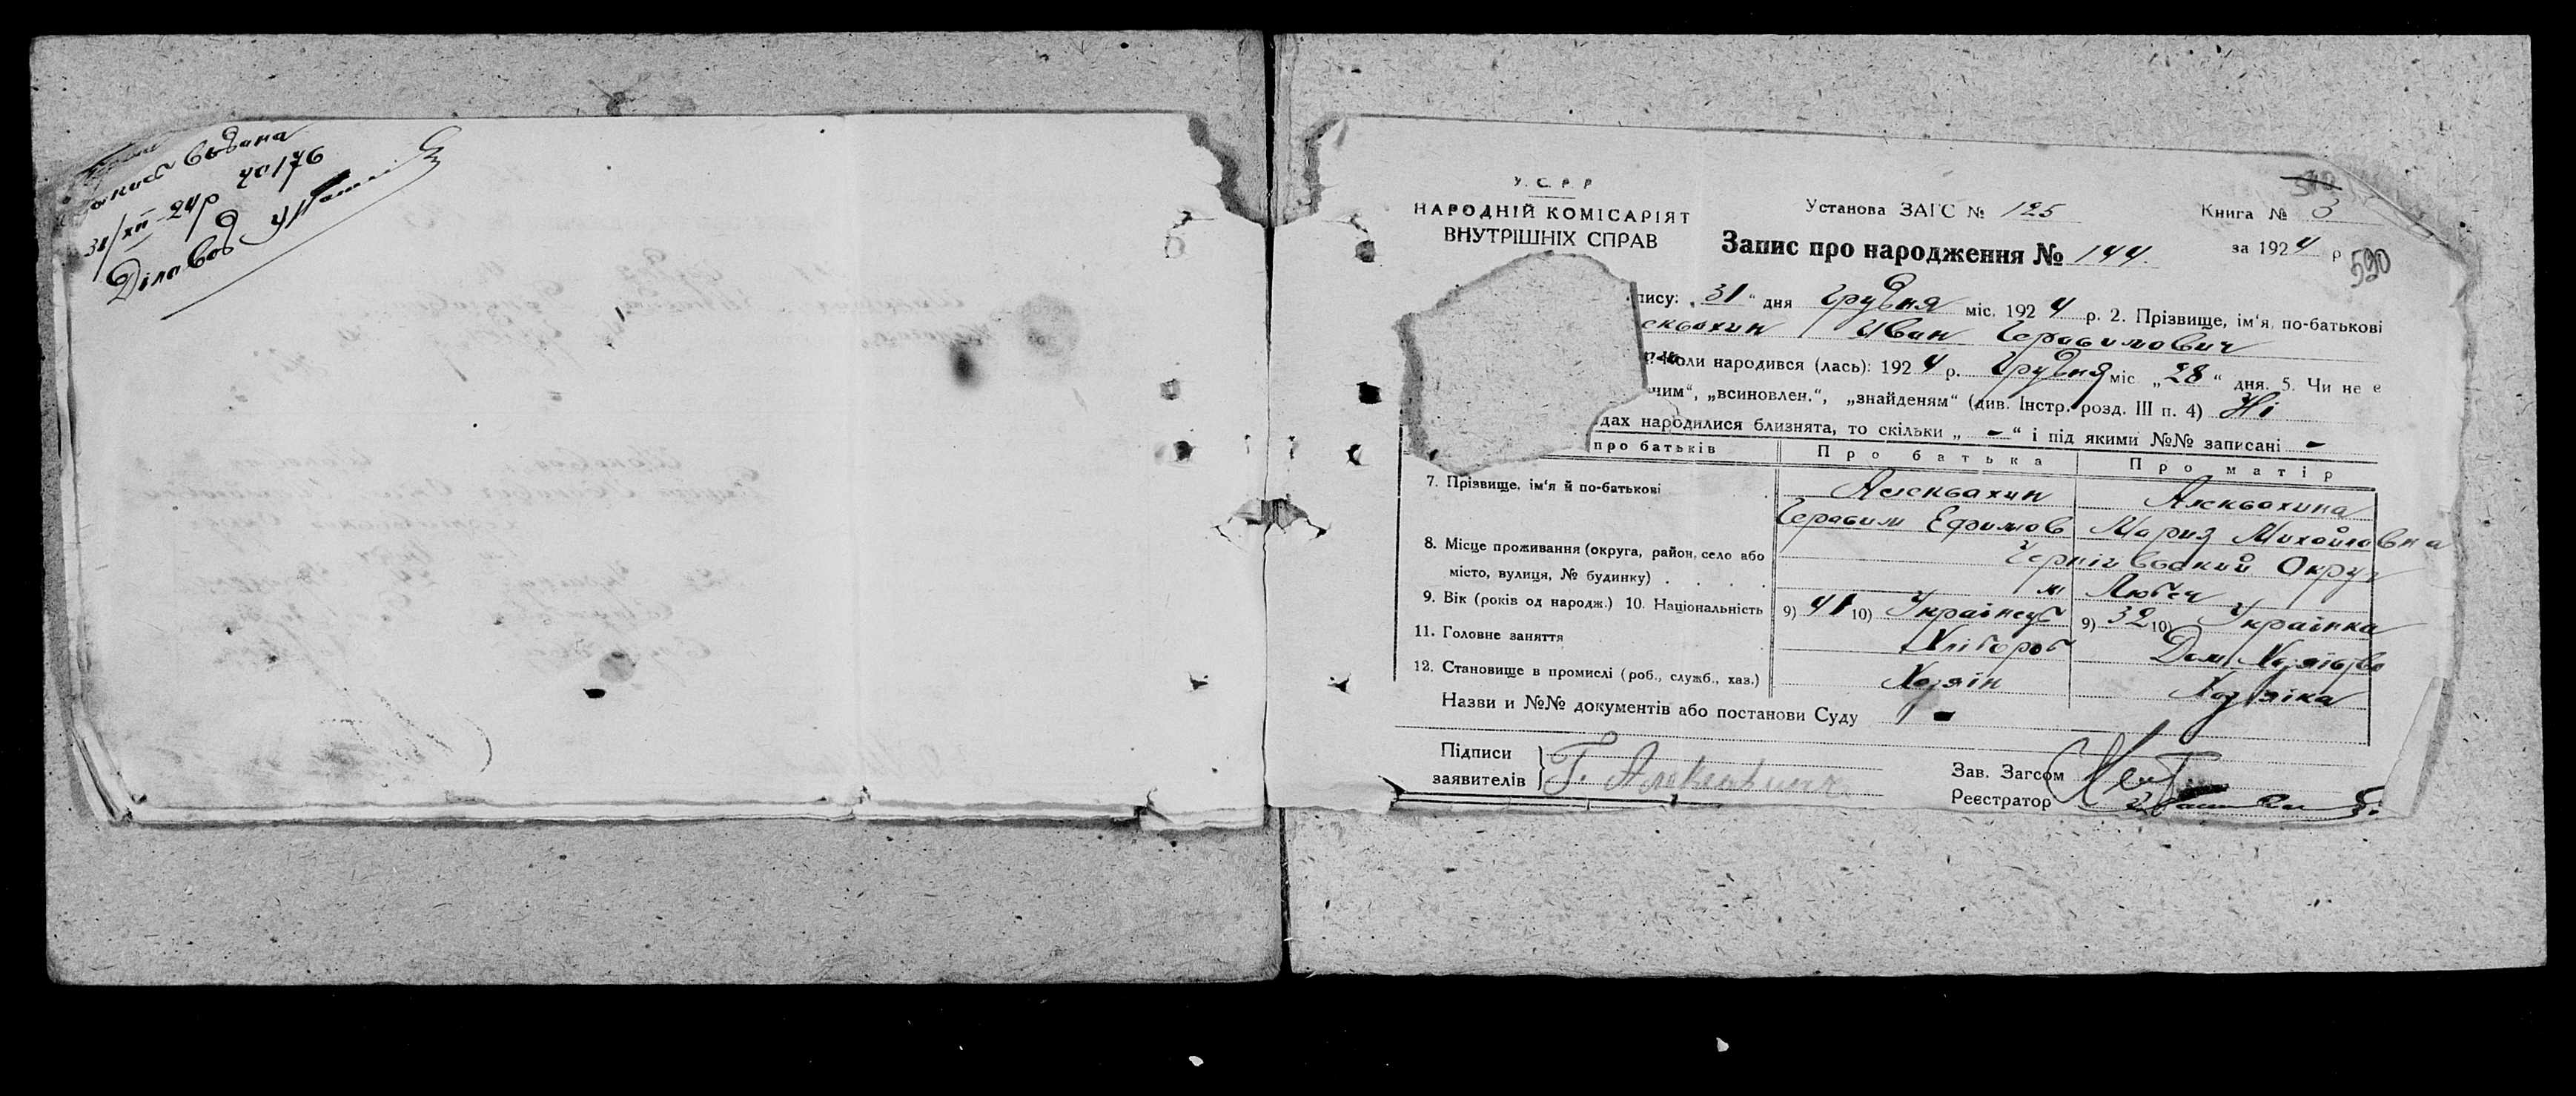 выдана
31/XII-24р 40176
Діловод
У. С. Р. Р
НАРОДНІЙ КОМІСАРІЯТ
ВНУТРІШНІХ СПРАВ
Установа ЗАГС № 125
Книга № 3
Запис про народження № 144.
за 1924 р
590
пису: „31“ дня Грудня міс. 1924 р. 2. Прізвище, ім'я, по-батькові
Иван Герасимович
Коли народився (лась): 1924 р. Грудня міс „28“ дня. 5. Чи не є
чим“, „всиновлен.“, „знайденям“ (див. Інстр. розд. III п. 4) Ні
дах народилися близнята, то скільки „ - “ і під якими №№ записані -
про батьків Про батька Про матір
7. Прізвище, ім'я й по-батькові
Герасим Ефимов Мария Михайловна
8. Місце проживання (округа, район, село або
місто, вулиця, № будинку) . . . .
Чернігівський Округ
м Любеч
9. Вік (років од народж.) 10. Національність 9) 41 10) Українець 9) 32 10) Українка
11. Головне заняття Хлібороб Дом Хозяїство
12. Становище в промислі (роб., служб., хаз.) Хозяїн Хозяїка
Назви и №№ документів або постанови Суду -
Підписи
заявителів } Г.
Зав. Загсом
Реєстратор